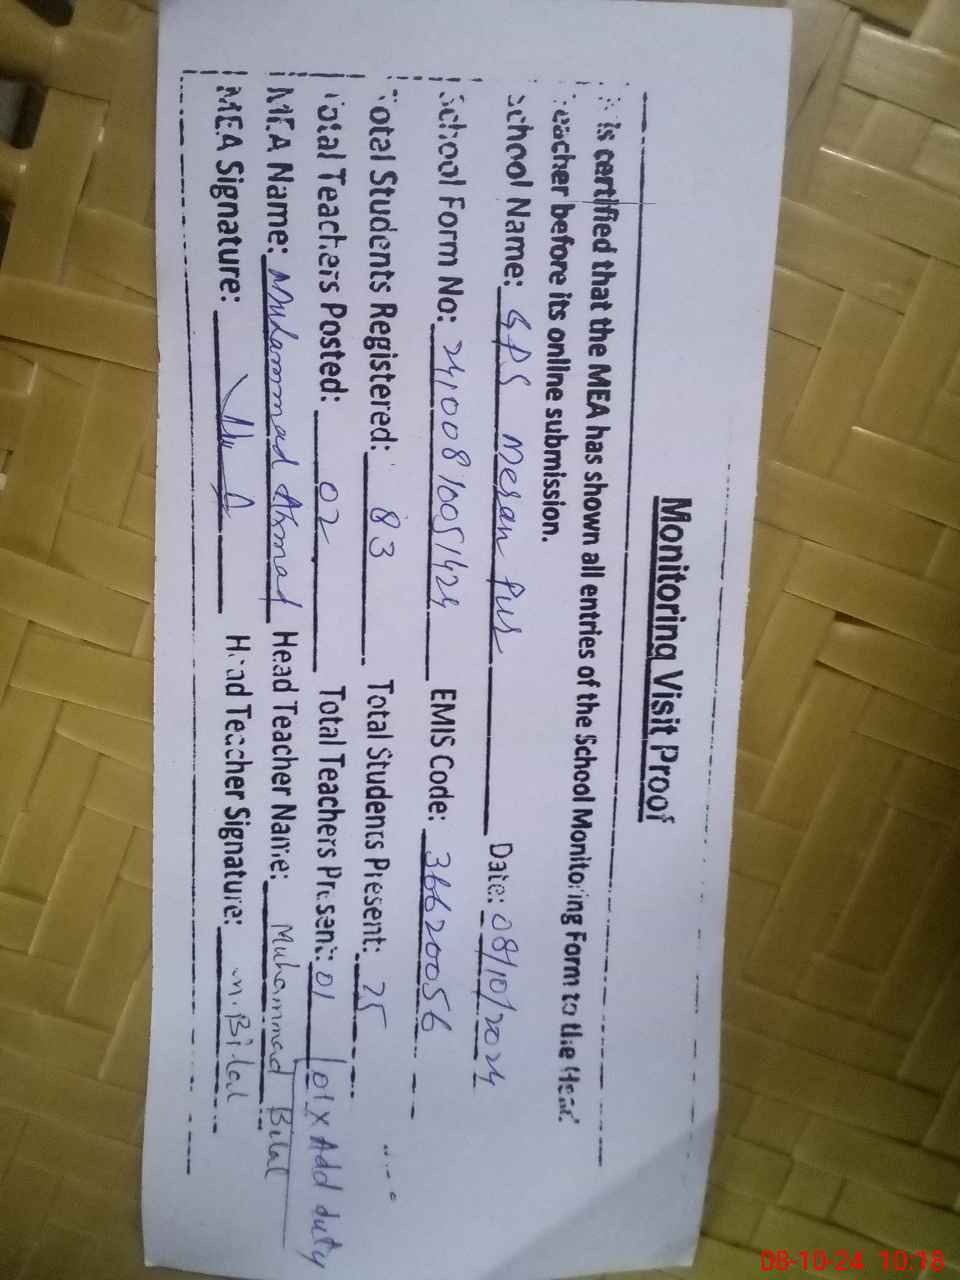 Monitoring Visit Proof
is certified that the MEA has shown all entries of the School Monitoring Form to the Head
Teacher before its online submission.
School Name: GPS Meran Pur Date: 08/10/2024
School Form No: EMIS Code: 36620056
Total Students Registered: 83 Total Students Present: 25
Total Teachers Posted: 02 Total Teachers Present: 01 / 01 x Add duty
MEA Name: Muhammad Ahmad Head Teacher Name: Muhammad Bilal
MEA Signature: Head Teacher Signature: M. Bilal
08-10-24 10:18